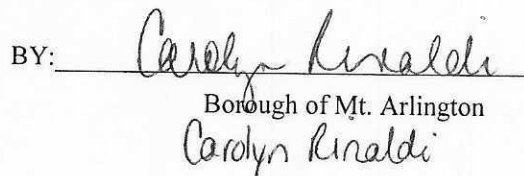 BY: Carolyn Rinaldi
Borough of Mt. Arlington
Carolyn Rinaldi